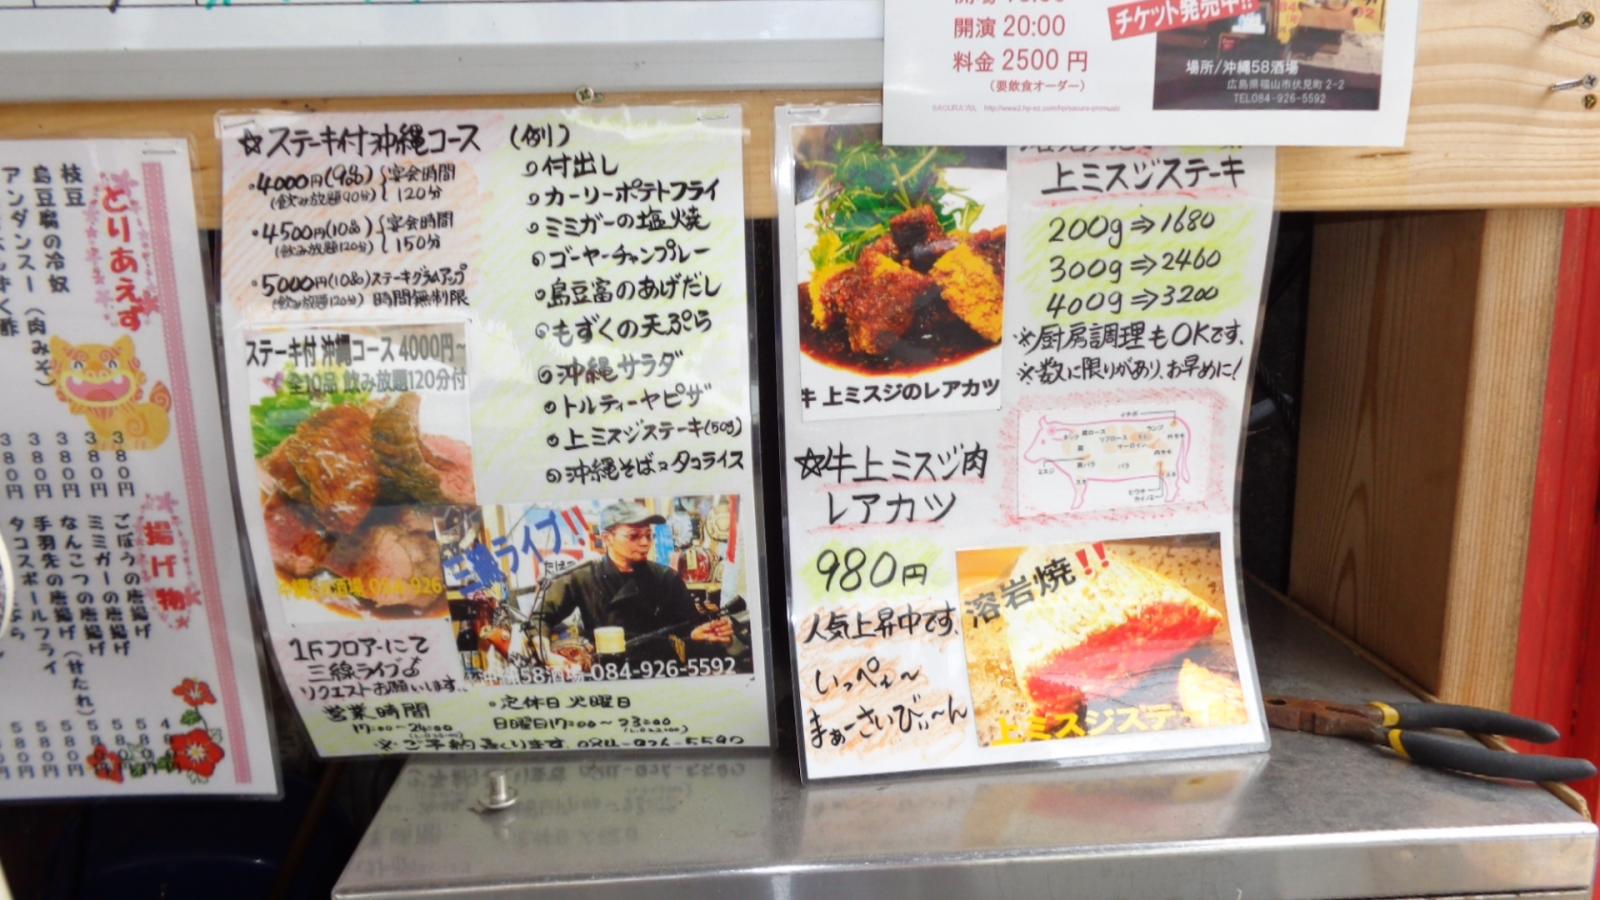 とりあえず
枝豆
島豆腐の冷奴
アンダンスー（肉みそ）
380円
380円
380円
380円
揚げ物
ごぼうの唐揚げ
ミミガーの唐揚げ
なんこつの唐揚げ（甘たれ）
手羽先の唐揚げ
タコスボールフライ
☆ステーキ付沖縄コース
・4000円(9品)
(飲み放題90分)
宴会時間
120分
・4500円(10品)
(飲み放題120分)
宴会時間
150分
・5000円(10品)ステーキグラムアップ
(飲み放題120分) 時間無制限
(例)
付出し
カーリーポテトフライ
ミミガーの塩焼
ゴーヤーチャンプレー
島豆富のあげだし
もずくの天ぷら
沖縄サラダ
トルティーヤピザ
上ミスジステーキ(50g)
沖縄そばorタコライス
ステーキ付 沖縄コース 4000円~
全10品 飲み放題120分付
沖縄58酒場 084-926
三線ライブ!!
沖縄58酒場 084-926-5592
1Fフロアーにて
三線ライブ♪
リクエストお願いします。
営業時間
17:00～24:00
・定休日 火曜日
日曜日17:00～23:00
※ご予約承ります。084-926-5592
開演 20:00
料金 2500 円
（要飲食オーダー）
チケット発売中!!
場所/沖縄58酒場
広島県福山市伏見町 2-2
TEL084-926-5592
上ミスジステーキ
200g⇒1680
300g⇒2460
400g⇒3200
※厨房調理もOKです。
※数に限りがあり、お早めに!
牛 上ミスジのレアカツ
☆牛上ミスジ肉
レアカツ
980円
人気上昇中です。
いっぺぇ～
まぁーさいびぃ～ん
溶岩焼!!
上ミスジステーキ